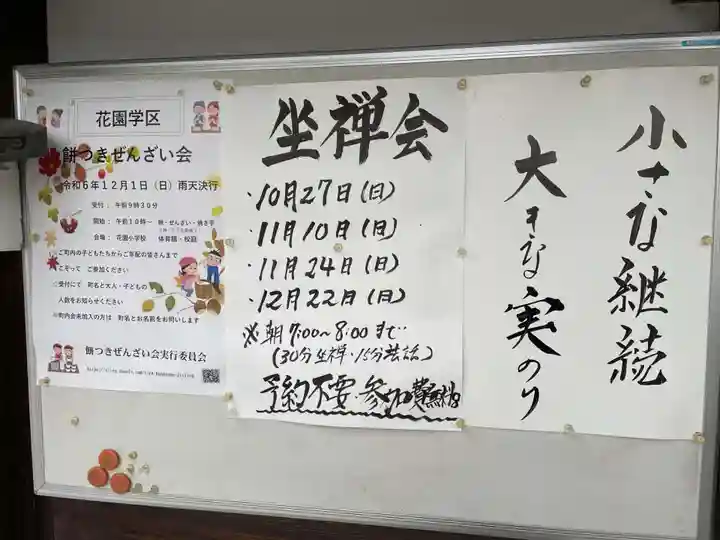 花園学区
餅つきぜんざい会
令和6年12月1日（日）雨天決行
受付： 午前9時30分
開始： 午前10時〜 餅・ぜんざい・焼き芋
会場： 花園小学校 体育館・校庭
○ご町内の子どもたちからご年配の皆さんまで
こぞって ご参加ください
○受付にて 町名と大人・子どもの
人数をお知らせください
※町内会未加入の方は 町名とお名前をお伺いします
餅つきぜんざい会実行委員会
坐禅会
・10月27日（日）
・11月10日（日）
・11月24日（日）
・12月22日（日）
※朝7:00〜8:00まで
（30分坐禅・15分法話）
予約不要・参加費無料
小さな継続
大きな実のり